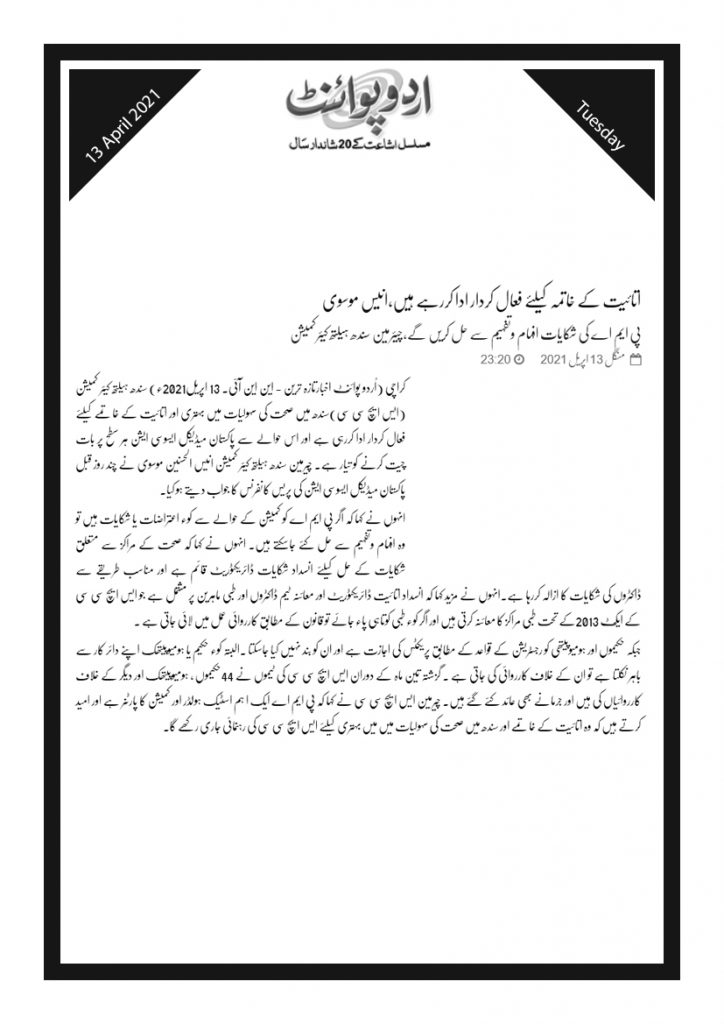 13 April 2021
Tuesday
اردو پوائنٹ
مسلسل اشاعت کے 20 شاندار سال
اتائیت کے خاتمہ کیلئے فعال کردار ادا کررہے ہیں،انیس موسوی
پی ایم اے کی شکایات افہام و تفہیم سے حل کریں گے،چیئرمین سندھ ہیلتھ کیئر کمیشن
منگل 13 اپریل 2021 23:20
کراچی (اُردو پوائنٹ اخبارتازہ ترین - این این آئی۔ 13 اپریل2021ء) سندھ ہیلتھ کیئر کمیشن
(ایس ایچ سی سی)سندھ میں صحت کی سہولیات میں بہتری اور اتائیت کے خاتمے کیلئے
فعال کردار ادا کررہی ہے اور اس حوالے سے پاکستان میڈیکل ایسوسی ایشن ہر سطح پر بات
چیت کرنے کو تیار ہے۔ چیرمین سندھ ہیلتھ کیئر کمیشن انیس الحسنین موسوی نے چند روز قبل
پاکستان میڈیکل ایسوسی ایشن کی پریس کانفرنس کا جواب دیتے ہو کیا۔
انہوں نے کہا کہ اگر پی ایم اے کو کمیشن کے حوالے سے کوء اعتراضات یا شکایات ہیں تو
وہ افہام و تفہیم سے حل کئے جاسکتے ہیں۔ انہوں نے کہا کہ صحت کے مراکز سے متعلق
شکایات کے حل کیلئے انسداد شکایات ڈائریکٹوریٹ قائم ہے اور مناسب طریقے سے
ڈاکٹروں کی شکایات کا ازالہ کررہا ہے۔انہوں نے مزید کہا کہ انسداد اتائیت ڈائریکٹوریٹ اور معائنہ ٹیم ڈاکٹروں اور طبی ماہرین پر مشتمل ہے جو ایس ایچ سی سی
کے ایکٹ 2013 کے تحت طبی مراکز کا معائنہ کرتی ہیں اور اگر کوء طبی کوتاہی پاء جائے تو قانون کے مطابق کارروائی عمل میں لائی جاتی ہے ۔
جبکہ حکیموں اور ہومیوپیتھی کو رجسٹریشن کے قواعد کے مطابق پریکٹس کی اجازت ہے اور ان کو بند نہیں کیا جاسکتا ۔البتہ کوء حکیم یا ہومیوپیتھک اپنے دائر کار سے
باہر نکلتا ہے تو ان کے خلاف کاروائی کی جاتی ہے ۔ گزشتہ تین ماہ کے دوران ایس ایچ سی سی کی ٹیموں نے 44 حکیموں، ہومیوپیتھک اور دیگر کے خلاف
کارروائیاں کی ہیں اور جرمانے بھی عائد کئے گئے ہیں۔ چیرمین ایس ایچ سی سی نے کہا کہ پی ایم اے ایک اہم اسٹیک ہولڈر اور کمیشن کا پارٹنر ہے اور امید
کرتے ہیں کہ وہ اتائیت کے خاتمے اور سندھ میں صحت کی سہولیات میں میں بہتری کیلئے ایس ایچ سی سی کی رہنمائی جاری رکھے گا۔